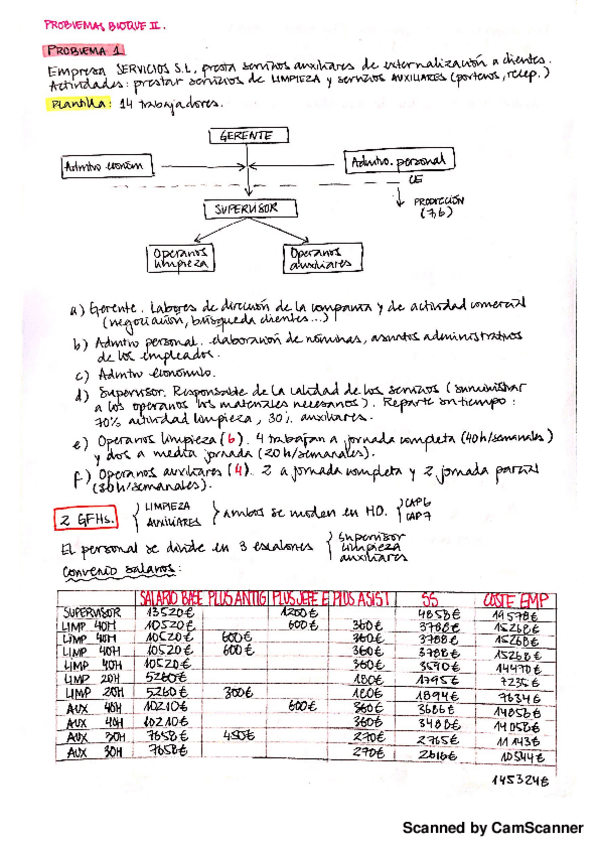 PROBLEMAS BLOQUE II.
PROBLEMA 1
Empresa SERVICIOS S.L, presta servicios auxiliares de externalización a clientes.
Actividades: prestar servicios de LIMPIEZA y servicios AUXILIARES (porteros, recep.)
Plantilla: 14 trabajadores.
GERENTE
Admtivo económ
Admtvo. personal
CE
PRODUCCIÓN
(7,6)
SUPERVISOR
Operarios limpieza
Operarios auxiliares
a) Gerente. Labores de dirección de la compañía y de actividad comercial
(negociación, búsqueda clientes...)
b) Admtvo personal. elaboración de nóminas, asuntos administrativos
de los empleados.
c) Admtvo económico.
d) Supervisor. Responsable de la calidad de los servicios (suministrar
a los operarios los materiales necesarios). Reparte su tiempo:
70% actividad limpieza, 30% auxiliares.
e) Operarios limpieza (6). 4 trabajan a jornada completa (40h/semanales)
y dos a media jornada (20h/semanales).
f) Operarios auxiliares (4). 2 a jornada completa y 2 jornada parcial
(30h/semanales).
2 GFHs. { LIMPIEZA AUXILIARES } ambos se miden en HO. { CAP6 CAP7
El personal se divide en 3 escalones { Supervisor limpieza auxiliares
Convenio salarios:
SALARIO BASE PLUS ANTIG PLUS JEFE E PLUS ASIST SS COSTE EMP
SUPERVISOR 13520€ 1200€ 4858€ 19578€
LIMP 40H 10520€ 600€ 360€ 3788€ 15268€
LIMP 40H 10520€ 600€ 360€ 3788€ 15268€
LIMP 40H 10520€ 600€ 360€ 3788€ 15268€
LIMP 40H 10520€ 360€ 3590€ 14470€
LIMP 20H 5260€ 180€ 1795€ 7235€
LIMP 20H 5260€ 300€ 180€ 1894€ 7634€
AUX 40H 10210€ 600€ 360€ 3686€ 14856€
AUX 40H 10210€ 360€ 3488€ 14058€
AUX 30H 7658€ 450€ 270€ 2765€ 11143€
AUX 30H 7658€ 270€ 2616€ 10544€
145324€
Scanned by CamScanner